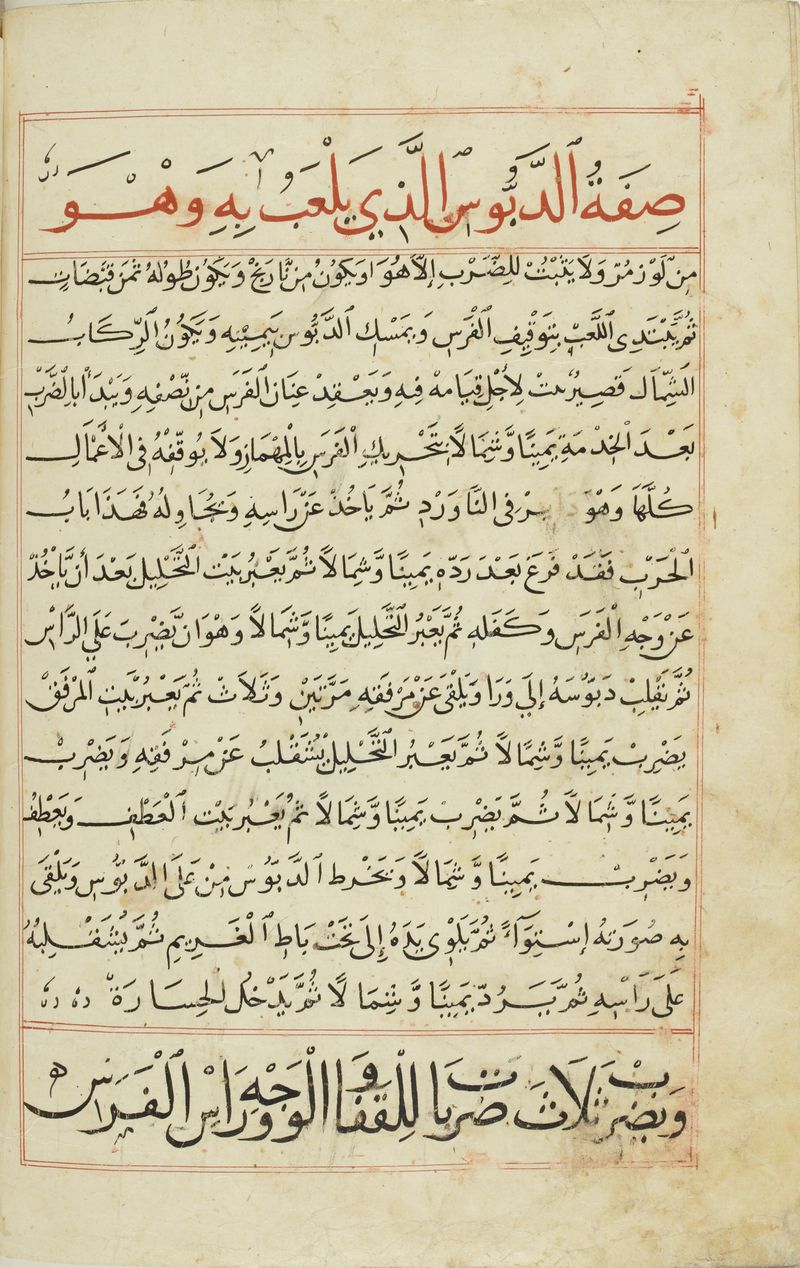 صِفَةُ الدَّبُّوسِ الَّذِي يَلْعَبُ بِهِ وَهْوَ
مِن لَوْز مُرّ وَلَا يَثْبُتُ لِلضَّرْبِ اِلَّا هُوَ اَو يَكُونُ مِن نَارَنجْ وَيَكُونُ طُولُهُ ثَمَن قَبَضَاتٍ
ثُمَّ يَبْتَدِي اللَّعِبْ بِتَوقِيفِ الْفَرَسِ وَيمْسِك الدَّبُّوس بِيَمِينِهِ وَيَكُونُ الرِّكَابُ
الشِّمَالِ قصير لِأَجْلِ قِيَامهْ فِيهِ وَيَعْقِدْ عِنَان الفَرَس مِن نِّصْفِهِ وَيَبْدَأُ بِالضَّرْبِ
بَعْدَ الْخِدْمَةِ يَمِينًا وَّشِمَالًا بِتَحْرِيكِ الْفَرَسِ بِالْمِهْمَازِ وَلَا يُوَقِّفْهُ فِي الْأَعْمَالِ
كُلِّهَا وَهْوَ فِي النَّاوَرْدِ ثُمَّ يَاخُذُ عَنْ رَاسِهِ وَيُحَاوِلهُ فَهَذَا بَابُ
الْحَرْبِ فَقَدْ فَرَغَ بَعْدَ رَدّهِ يَمِينًا وَّشِمَالًا ثُمَّ يَعْبُرُ بَيْت التَّحْلِيل بَعْدَ أَن يَّاخُذْ
عَنْ وَجْهِ الْفَرَسِ وَكَفَلهِ ثُمَّ يَعْبُرُ التَّحْلِيل يَمِينًا وَّشِمَالًا وَهْوَ اَن يَّضْرِبَ عَلَي الرَّاسْ
ثُمَّ يَقْلِبْ دَبُّوسَهُ إِلَي وَرَا وَيَلْقَى عَنْ مِرْفَقِهِ مَرَّتَيْنِ وَثَلَاثْ ثُمَّ يَعْبُرُ بَيْت الْمِرْفَقْ
يَضْرِبْ يَمِينًا وَّشِمَالًا ثُمَّ يَعْبُرُ التَّحْلِيل يُشَقْلِبُ عَنْ مِرْفَقِهِ وَيَضْرِبْ
يَمِينًا وَّشِمَالًا ثُمَّ يَضْرِبْ يَمِينًا وَّشِمَالًا ثُمَّ يَعْبُرُ بَيْت الْعَطْفِ وَيَعْطِفُ
وَيَضْرِبْ يَمِينًا وَّشِمَالًا وَيَخْرط الدَّبُّوس مِنْ عَلَى الدَّبُّوس وَيَلْقَى
بِهِ صُورَتهُ إِسْتِوَآءً ثُمَّ يَلْوِي يَدَهُ إِلَى تَحْتْ بَاطِ الْغَرِيمِ ثُمَّ يُشَقْلِبُهُ
عَلَى رَاسِهِ ثُمَّ يَرُدّ يَمِينًا وَّشِمَالًا ثُمَّ يَدْخُل لِخِسَارَةْ
وَيَضْرِبْ ثَلَاثَ ضَرَبَاتٍ لِلْقَفَا وَالْوَجْهِ وَرَاسِ الْفَرَسِ